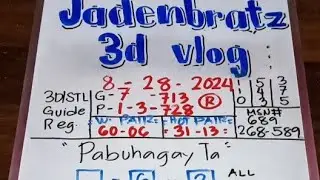 Jadenbratz
3d vlog
8 - 28 - 2024
3D|STL
Guide
Reg.
G - 7 - 713
P - 1 - 3 - 728
R
W. PAIR:
60-06
HOT PAIR:
= 31-13 =
1 5 3
1 4 7
0 3 5
MSN#
689
268-589
"Pabuhagay Ta"
ALL